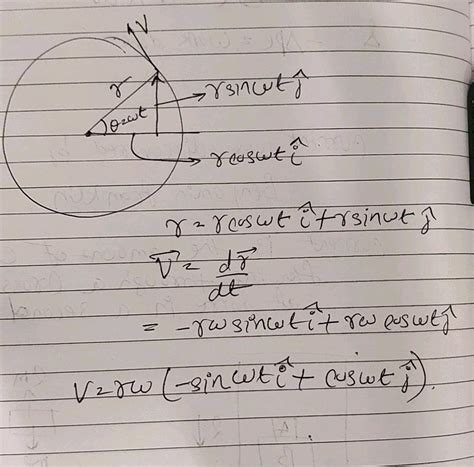 V
r
θ=ωt
r sinωt ĵ
r cosωt î
r = r cosωt î + r sinωt ĵ
V⃗ = dr⃗/dt
= -rω sinωt î + rω cosωt ĵ
V = rω (-sinωt î + cosωt ĵ).